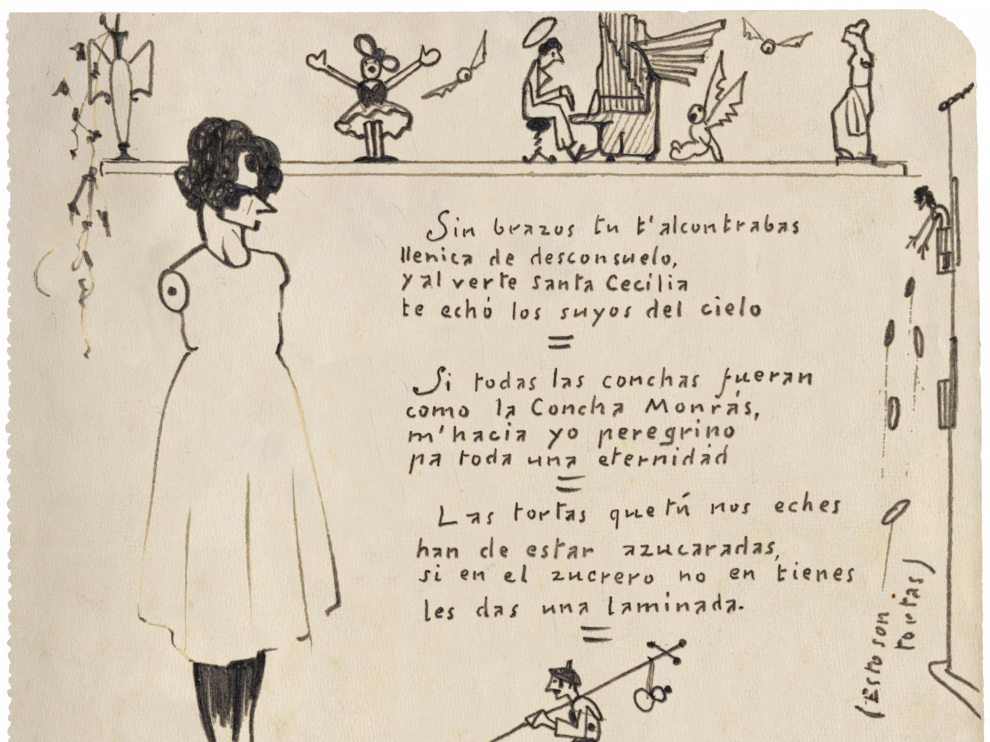 Sin brazos tu t'alcontrabas
llenica de desconsuelo,
y al verte santa Cecilia
te echó los suyos del cielo
=
Si todas las conchas fueran
como la Concha Monrás,
m'hacia yo peregrino
pa toda una eternidad
=
Las tortas que tú nos eches
han de estar azucaradas,
si en el zucrero no en tienes
les das una laminada.
=
(Esto son
tortas)